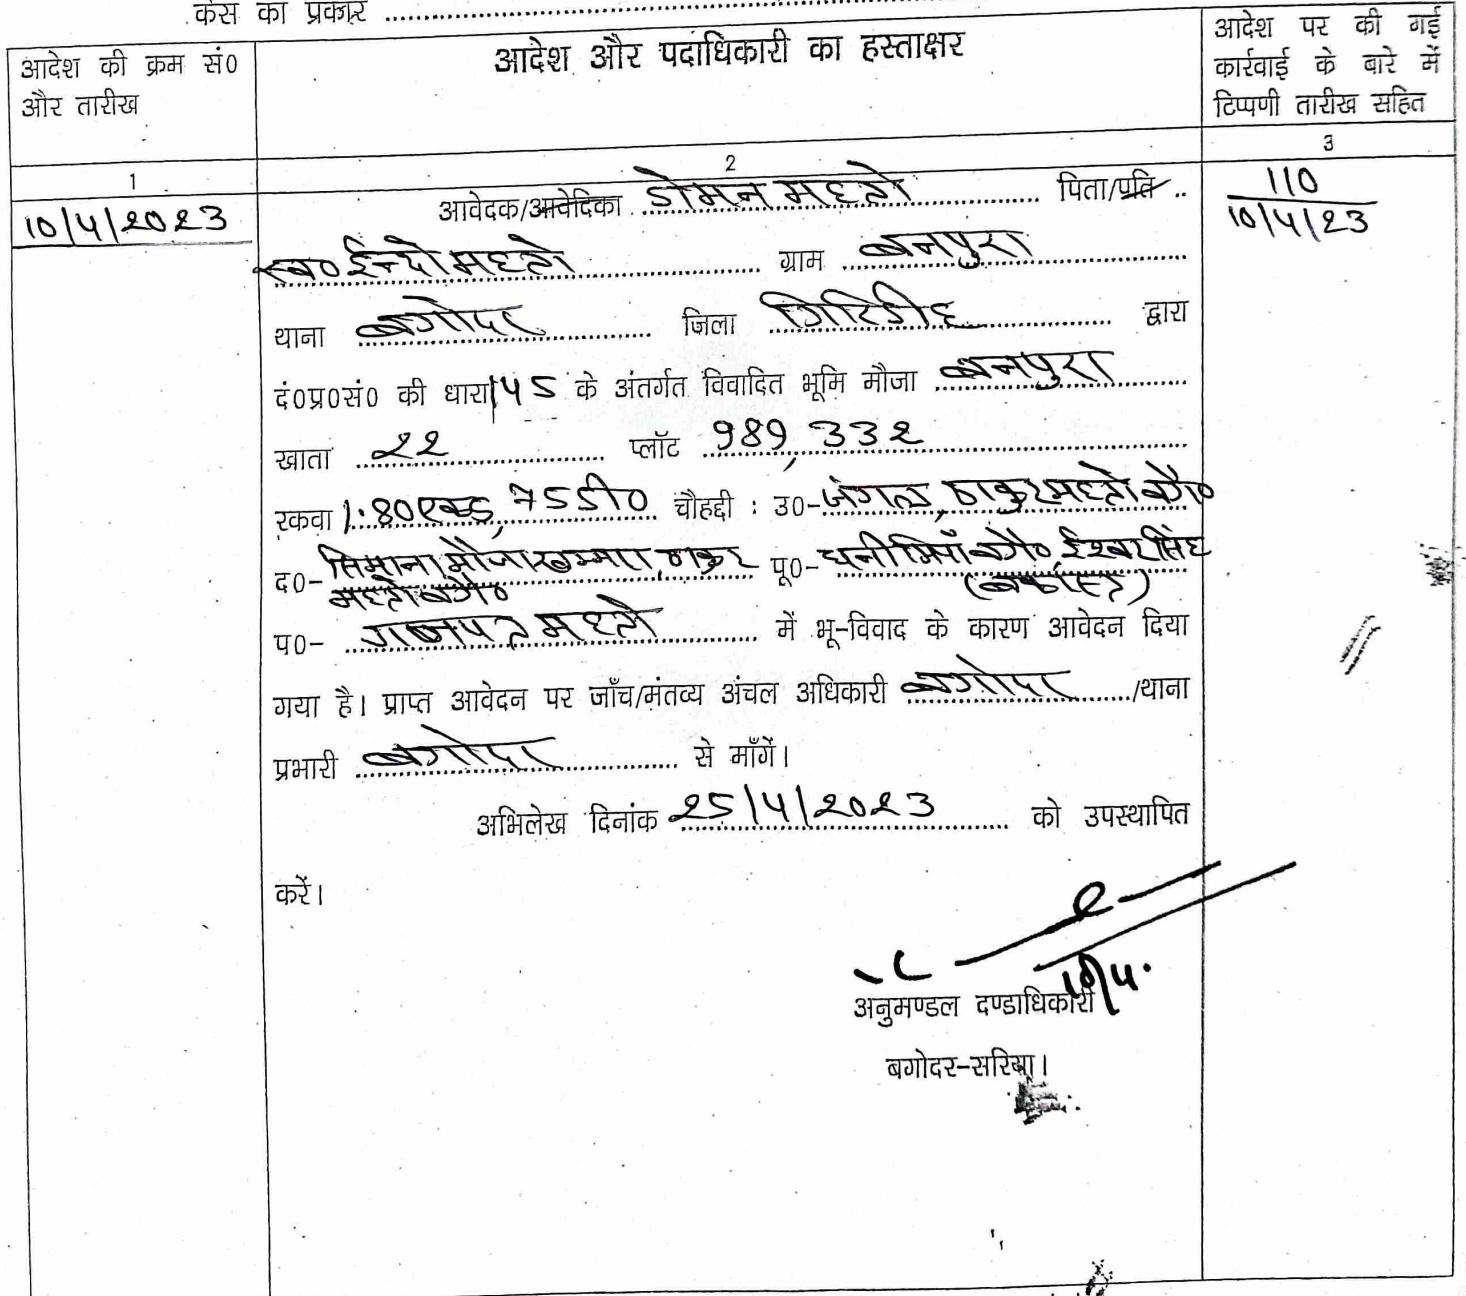 केस का प्रकार
आदेश की क्रम सं० और तारीख
आदेश और पदाधिकारी का हस्ताक्षर
आदेश पर की गई कार्रवाई के बारे में टिप्पणी तारीख सहित
1
2
3
10/4/2023
आवेदक/आवेदिका डोमन महतो पिता/पति
110
10/4/23
स्व० ईन्दो महतो ग्राम बनपुरा
थाना बगोदर जिला गिरिडीह द्वारा
दं०प्र०सं० की धारा 145 के अंतर्गत विवादित भूमि मौजा बनपुरा
खाता 22 प्लॉट 989, 332
रकवा 1.80 एकड़, 75 डी० चौहद्दी : उ०- जंगल, ठाकुर महतो वगै०
द०- सिमाना मौजा खम्भरा, ठाकुर महतो वगै० पू०- धनी मियाँ वगै० ईश्वर सिंह
प०- गणपत महतो में भू-विवाद के कारण आवेदन दिया
गया है। प्राप्त आवेदन पर जाँच/मंतव्य अंचल अधिकारी बगोदर /थाना
प्रभारी बगोदर से माँगें।
अभिलेख दिनांक 25/4/2023 को उपस्थापित
करें।
10/4.
अनुमण्डल दण्डाधिकारी
बगोदर-सरिया।